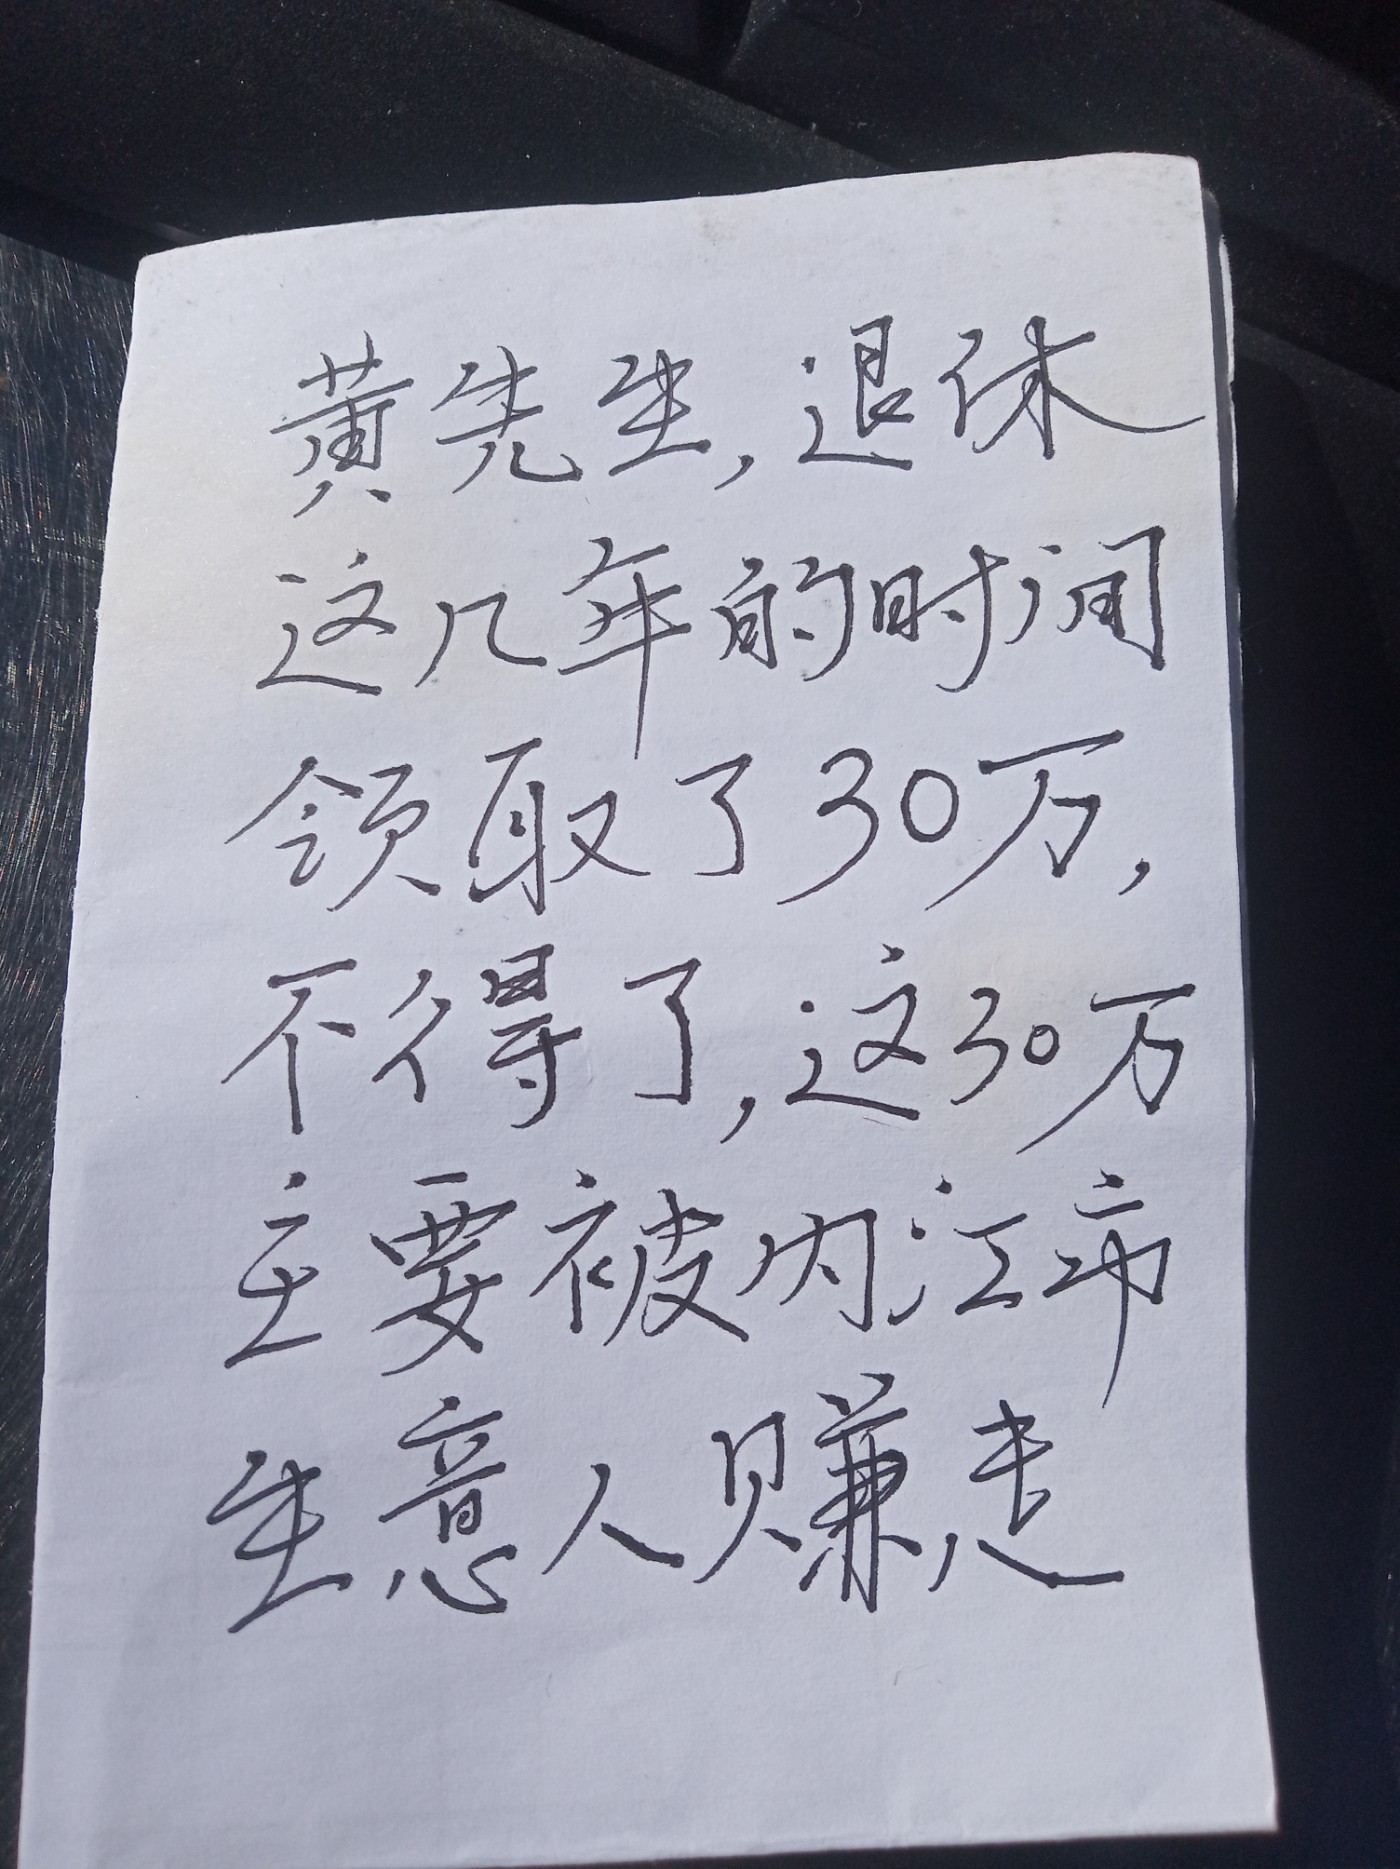 黄先生,退休
这几年的时间
领取了30万,
不得了,这30万
主要被内江市
生意人赚走